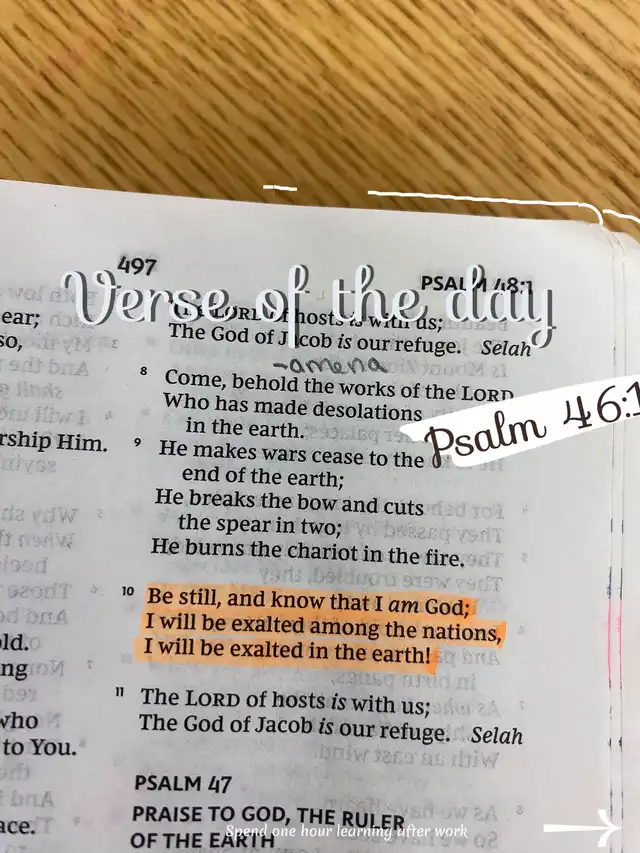 497
PSALM 48:1
Verse of the day
The LORD of hosts is with us;
The God of Jacob is our refuge. Selah
-amena
8 Come, behold the works of the LORD
Who has made desolations
in the earth.
Psalm 46:1
9 He makes wars cease to the
end of the earth;
He breaks the bow and cuts
the spear in two;
He burns the chariot in the fire.
10 Be still, and know that I am God;
I will be exalted among the nations,
I will be exalted in the earth!
11 The LORD of hosts is with us;
The God of Jacob is our refuge. Selah
PSALM 47
PRAISE TO GOD, THE RULER
OF THE EARTH
ear;
so,
rship Him.
old.
ng
who
to You.
ace.
Spend one hour learning after work